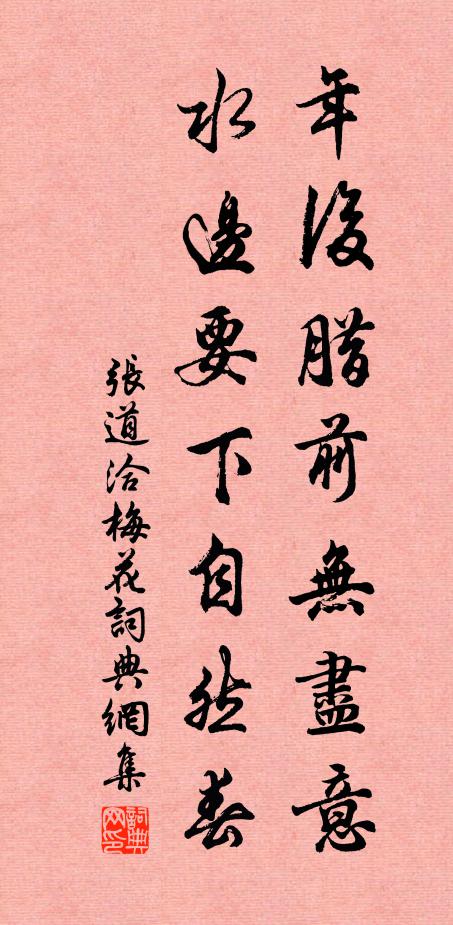 年後腊前無盡意
水邊要下自然春
張道洽梅花詞典網集
詞典网印